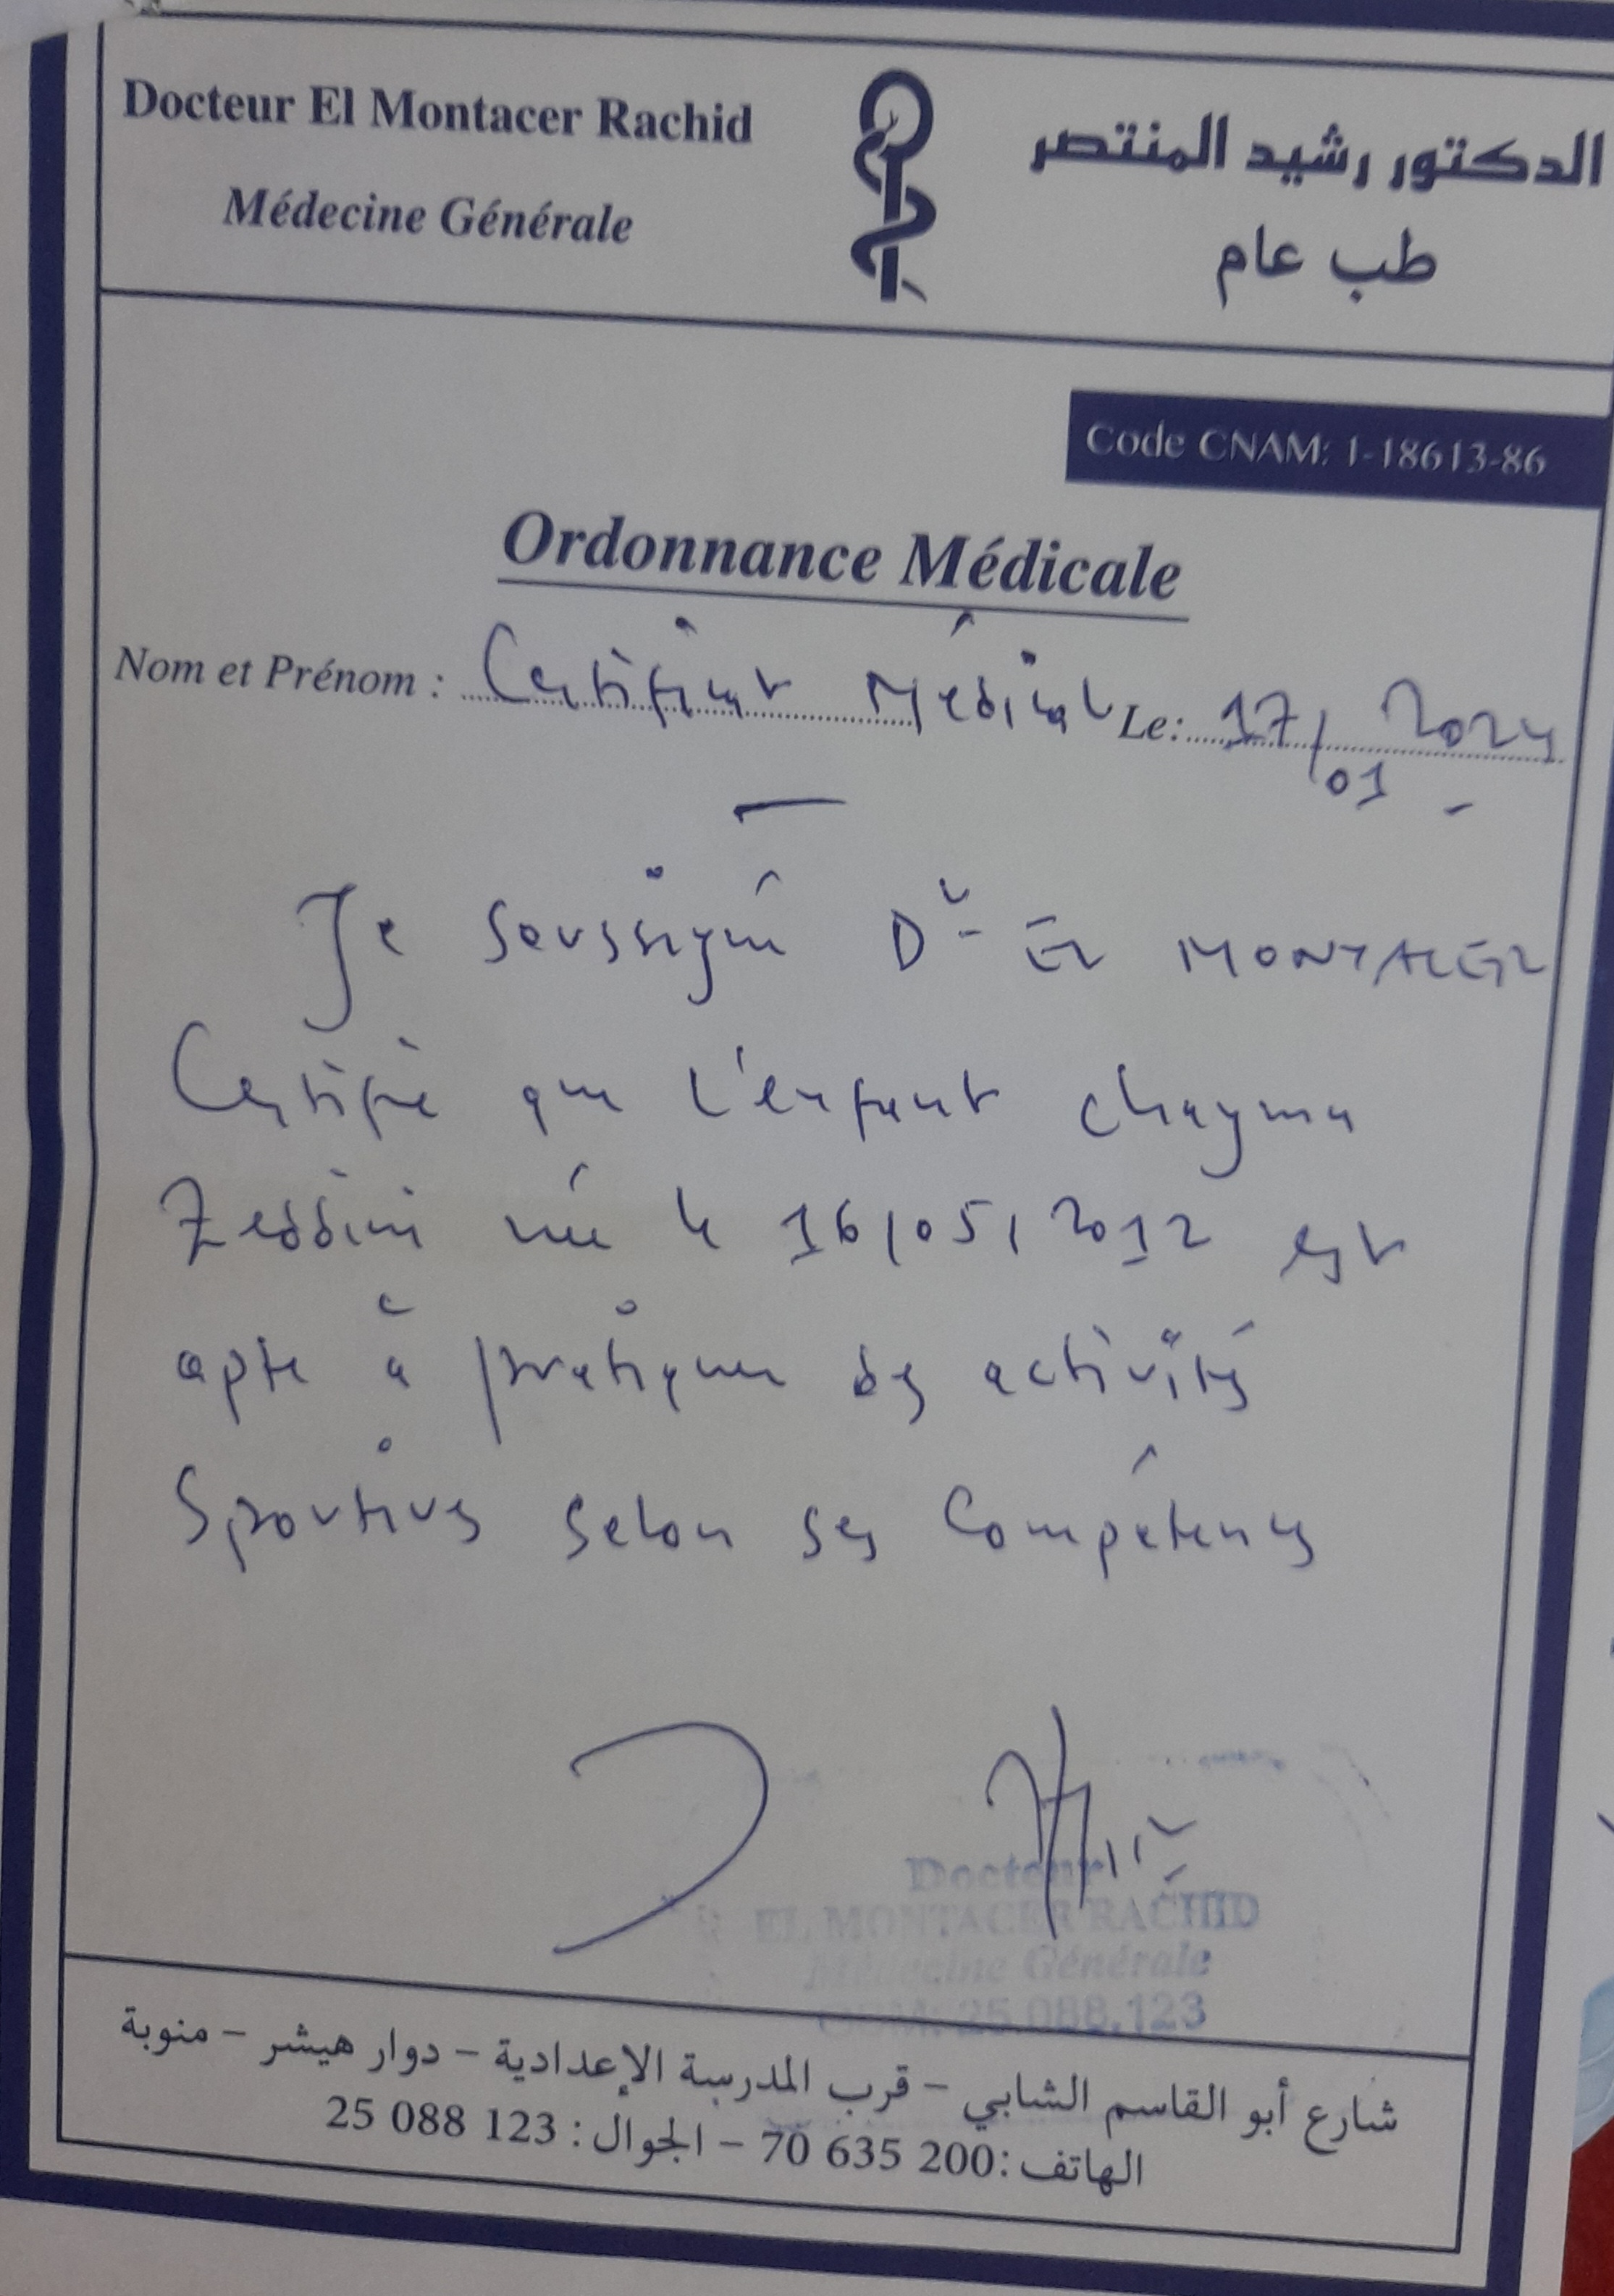 Docteur El Montacer Rachid
Médecine Générale
الدكتور رشيد المنتصر
طب عام
Code CNAM: 1-18613-86
Ordonnance Médicale
Nom et Prénom : Certificat Médical Le: 17/01 2024
Je soussigné Dr El MONTACER
Certifie que l'enfant chayma
Zeddini née le 16/05/2012 est
apte à pratiquer des activités
Sportives selon ses Compétences
Docteur
EL MONTACER RACHID
Médecine Générale
25.088.123
شارع أبو القاسم الشابي - قرب المدرسة الإعدادية - دوار هيشر - منوبة
الهاتف: 200 635 70 - الجوال: 123 088 25